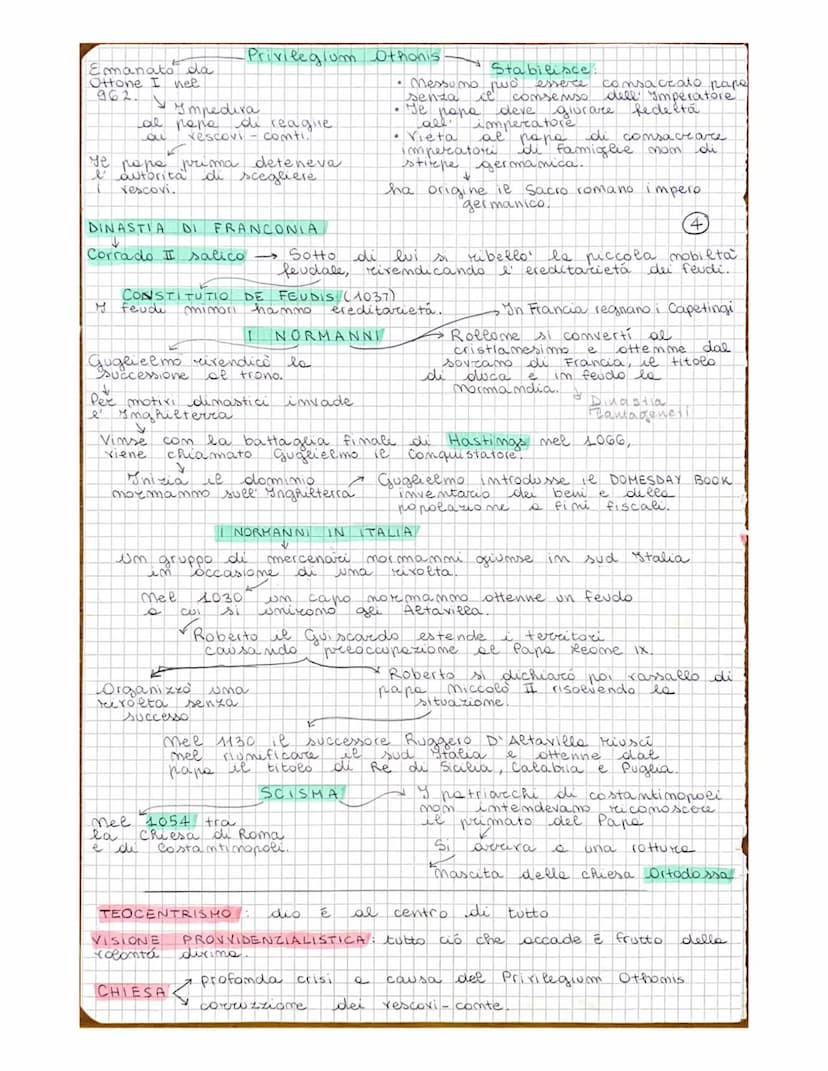 Privilegium Othonis
Emanato da
Ottone I nel
962.
Impediva
al papa di reagire
ai vescovi-conti.
Il papa prima deteneva
l'autorità di scegliere
i vescovi.
Stabilisce:
• Nessuno può essere consacrato papa
senza il consenso dell'Imperatore
• Il papa deve giurare fedeltà
all'imperatore
• Vieta al papa di consacrare
imperatori di famiglie non di
stirpe germanica.
ha origine il Sacro romano impero
germanico.
4
DINASTIA DI FRANCONIA
Corrado II salico → Sotto di lui si ribellò la piccola nobiltà
feudale, rivendicando l'ereditarietà dei feudi.
CONSTITUTIO DE FEUDIS (1037)
I feudi minori hanno ereditarietà.
In Francia regnano i Capetingi
I NORMANNI
Rollone si convertì al
cristianesimo e ottenne dal
sovrano di Francia, il titolo
di duca e in feudo la
Normandia.
Dinastia
Plantageneti
Guglielmo rivendicò la
successione al trono.
Per motivi dinastici invade
l'Inghilterra
Vinse con la battaglia finale di Hastings nel 1066,
viene chiamato Guglielmo il Conquistatore.
Inizia il dominio
normanno sull'Inghilterra
Guglielmo introdusse il DOMESDAY BOOK
inventario dei beni e della
popolazione a fini fiscali.
I NORMANNI IN ITALIA
Un gruppo di mercenari normanni giunse in sud Italia
in occasione di una rivolta.
Nel 1030 un capo normanno ottenne un feudo
a cui si unirono gli Altavilla.
Roberto il Guiscardo estende i territori
causando preoccupazione al Papa Leone IX.
Organizzò una
rivolta senza
successo
Roberto si dichiarò poi vassallo di
papa Niccolò II risolvendo la
situazione.
Nel 1130 il successore Ruggero D'Altavilla riuscì
nel riunificare il sud Italia e ottenne dal
papa il titolo di Re di Sicilia, Calabria e Puglia.
SCISMA
Nel 1054 tra
la Chiesa di Roma
e di Costantinopoli.
I patriarchi di costantinopoli
non intendevano riconoscere
il primato del Papa
Si arriva a una rottura
nascita della chiesa Ortodossa
TEOCENTRISMO: dio è al centro di tutto
VISIONE PROVVIDENZIALISTICA: tutto ciò che accade è frutto della
volontà divina.
CHIESA
profonda crisi a causa del Privilegium Othonis
corruzzione dei vescovi-conte.